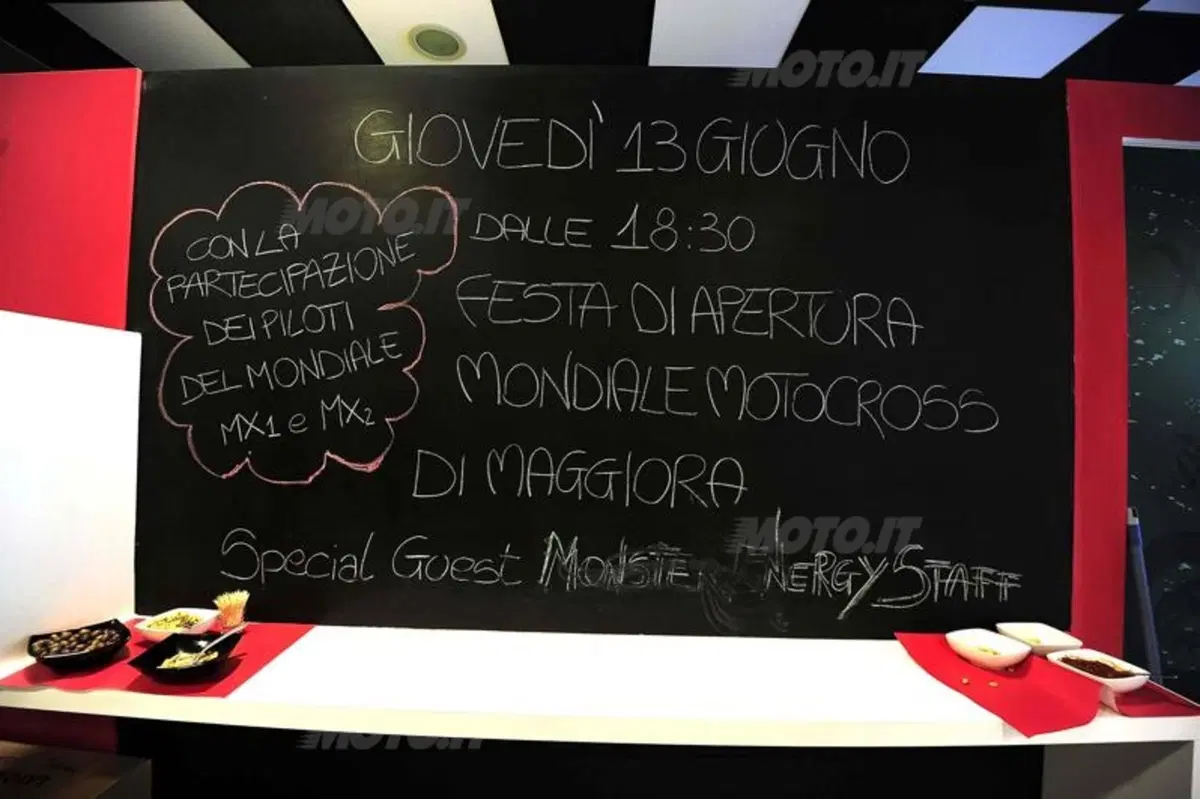 GIOVEDÌ 13 GIUGNO
DALLE 18:30
FESTA DI APERTURA
MONDIALE MOTOCROSS
DI MAGGIORA
Special Guest MONSTER ENERGY STAFF
CON LA
PARTECIPAZIONE
DEI PILOTI
DEL MONDIALE
MX1 e MX2
MOTO.IT
MOTO.IT
MOTO.IT
MOTO.IT